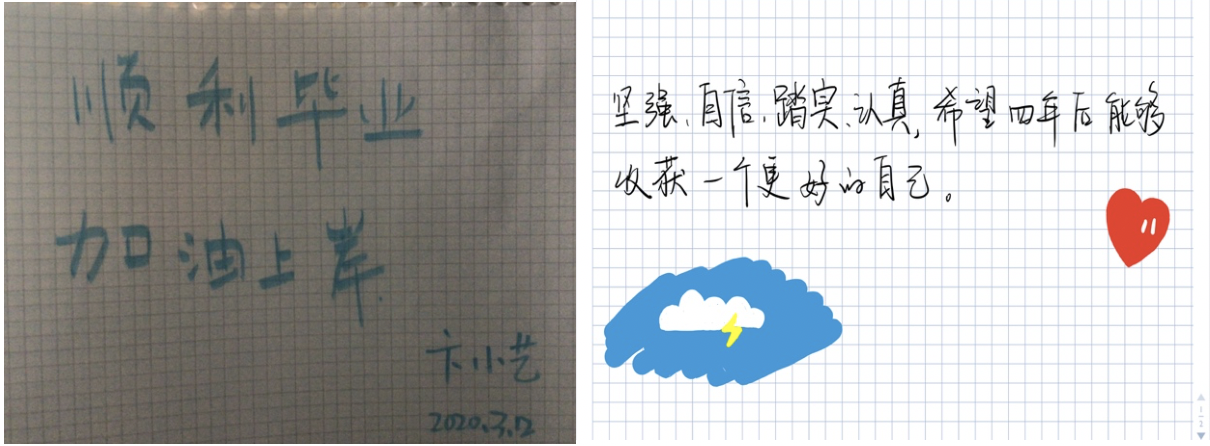 顺利毕业
加油上岸
卞小艺
2020.3.12
坚强、自信、踏实、认真,希望四年后能够
收获一个更好的自己。